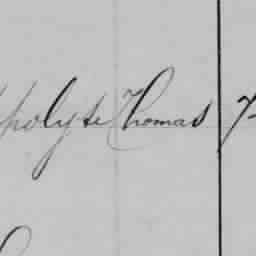 ppolyte Thomas 7